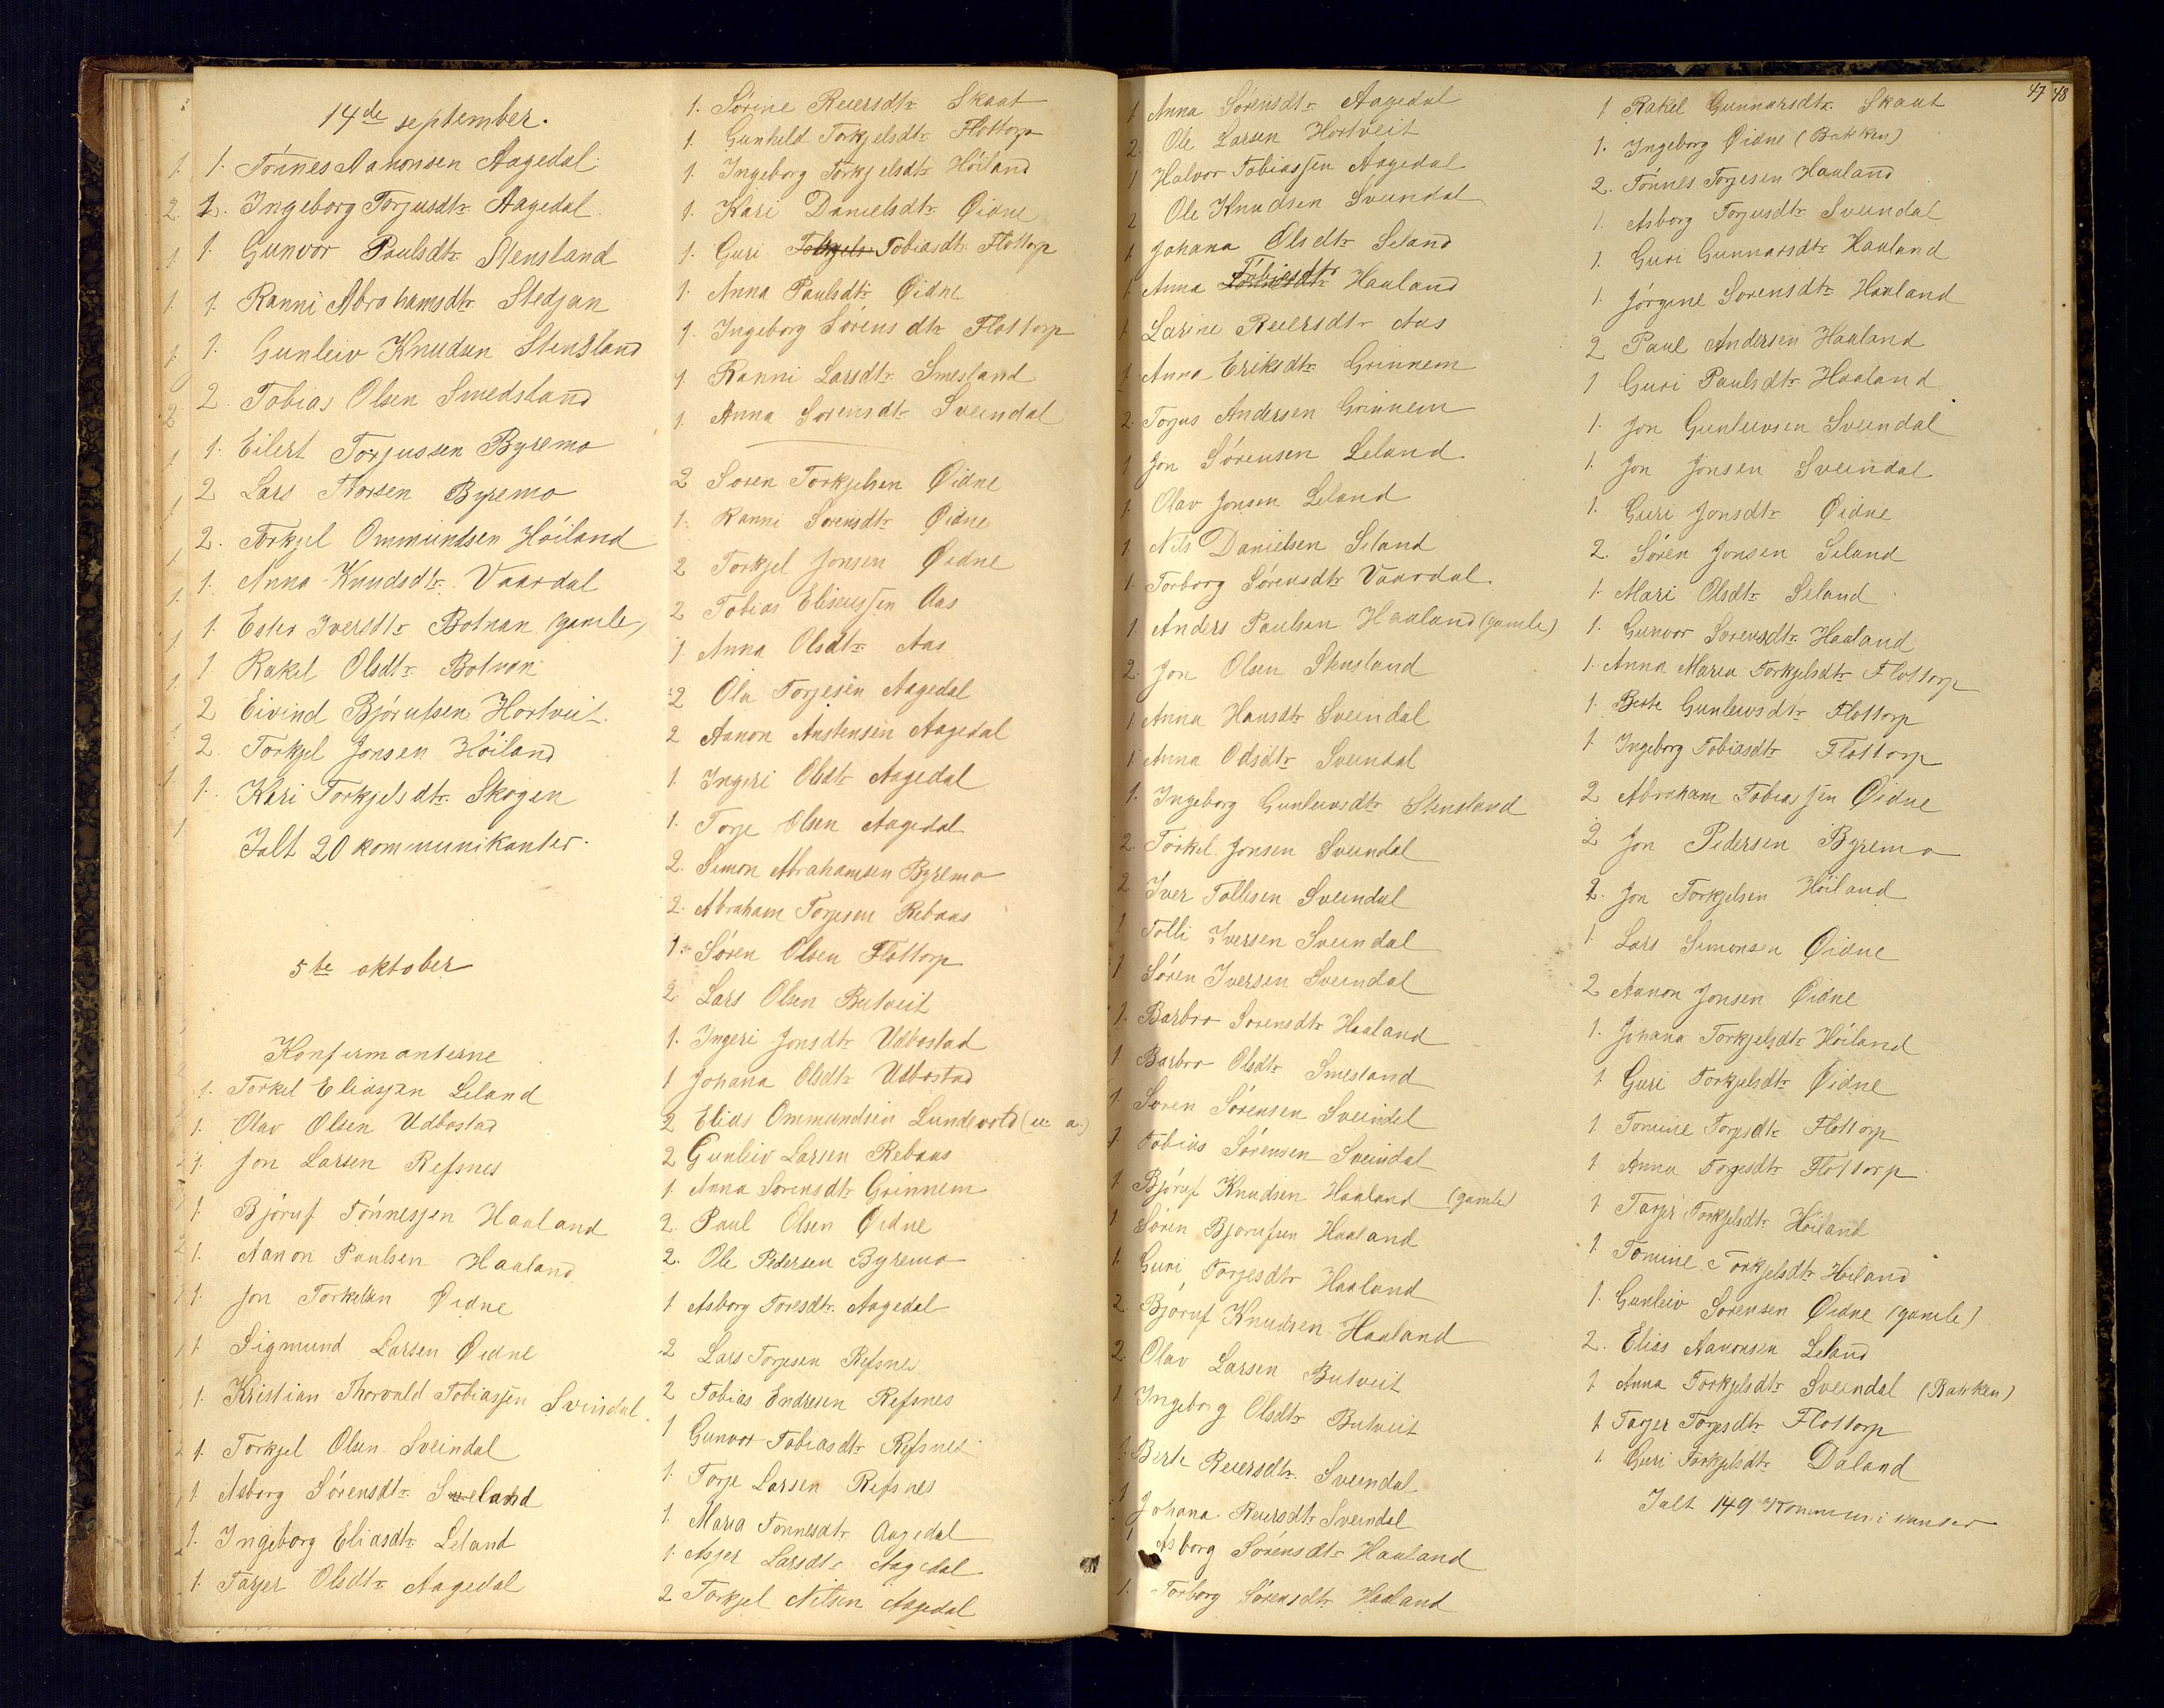 14de september.
1. Tönnes Aanonsen Aagedal.
2. Ingeborg Torjusdtr Aagedal.
1. Gunvor Paulsdtr Stensland
1. Ranni Abrahamsdtr Stedjan
1. Gunleiv Knudsen Stensland
2. Tobias Olsen Smedsland
1. Eilert Torjussen Byremo
2 Lars Thorsen Byremo
2. Torkjel Ommundsen Höiland
1. Anna Knudsdtr. Vaardal
1. Ester Iversdtr Botnan (gamle)
1 Rakel Olsdtr Botnan
2 Eivind Björufsen Hortveit.
2. Torkjel Jonsen Höiland
1. Kari Torkjelsdtr. Skogen
Ialt 20 kommunikanter.
5te oktober
Konfirmanterne
1. Torkel Eliassen Leland
1. Olav Olsen Udbostad
1. Jon Larsen Refsnes
1. Björuf Tönnessen Haaland
1. Aanon Paulsen Haaland
1. Jon Torkelsen Öidne
1. Sigmund Larsen Öidne
1. Kristian Thorvald Tobiassen Svindal.
1. Torkjel Olsen Sveindal
1. Asborg Sörensdtr. Seeland
1. Ingeborg Eliasdtr. Leland
1. Tarjer Olsdtr. Aagedal
1. Sörine Reiersdtr Skaat
1. Gunhild Torkjelsdtr Flottorp
1. Ingeborg Torkjelsdtr Höiland
1. Kari Danielsdtr. Öidne
1. Guri Tobiasdtr Flottorp
1. Anna Paulsdtr Öidne
1. Ingeborg Sörensdtr Flottorp
1. Ranni Larsdtr. Smesland
1. Anna Sörensdtr Sveindal
2 Sören Torkjelsen Öidne
1. Ranni Sörensdtr Öidne
2 Torkjel Jonsen Öidne
2 Tobias Eliseussen Aas
1. Anna Olsdtr Aas
2 Ola Torjesen Aagedal
2 Aanon Austensen Aagedal
1. Ingeri Olsdtr Aagedal
1. Torje Olsen Aagedal
2. Simon Abrahamsen Byremo
2. Abraham Torjesen Rebaas
1. Sören Olsen Flottorp
2. Lars Olsen Butveit
1. Ingeri Jonsdtr Udbostad
1 Johana Olsdtr Udbostad
2 Elias Ommundsen Lundevold
2 Gunleiv Larsen Rebaas
1. Anna Sörensdtr Grinnem
2. Paul Olsen Öidne
2. Ole Pedersen Byremo
1 Asborg Toresdtr. Aagedal
2 Lars Torjesen Refsnes
2 Tobias Endresen Refsnes
1 Gunvor Tobiasdtr Refsnes
1. Torje Larsen Refsnes
1. Maria Tönnesdtr Aagedal
1. Asjer Larsdtr Aagedal
2 Torkjel Nilsen Aagedal
1 Anna Sörensdtr Aagedal
2. Ole Larsen Hortveit
1 Halvor Tobiassen Aagedal
2 Ole Knudsen Sveindal
1 Johana Olsdtr Seland
1 Anna Tobiesdtr Haaland
1 Larine Reiersdtr Aas
1 Anna Eriksdtr Grinnem
2. Torjus Andersen Grinnem
1 Jon Sörensen Leland
1. Olav Jonsen Leland
1. Nils Danielsen Seland
1. Torborg Sörensdtr Vaardal.
1. Anders Paulsen Haaland (gamle)
2. Jon Olsen Stensland
1 Anna Hansdtr Sveindal
1 Anna Odsdtr Sveindal
1. Ingeborg Gunleivsdtr Stensland
2. Torkel Jonsen Sveindal
2 Iver Tollesen Sveindal
1 Tolli Iversen Sveindal
1 Sören Iversen Sveindal
1. Barbro Sorensdtr Haaland
1 Barbro Olsdtr Smesland
1. Sören Sörensen Sveindal
1. Tobias Sörensen Sveindal
1. Björuf Knudsen Haaland (gamle)
1 Sören Björufsen Haaland
1. Guri Torjesdtr Haaland
2. Björuf Knudsen Haaland
2. Olav Larsen Butveit
1 Ingeborg Olsdtr Butveit
1. Berte Reiersdtr. Sveindal
1 Johana Reiersdtr Sveindal
1 Asborg Sörensdtr Haaland
1. Torborg Sörensdtr Haaland
47 48
1 Rakel Gunnarsdtr. Skaat
1. Ingeborg Öidne (Bakken)
2. Tönnes Torjesen Haaland
1. Asborg Torjusdtr Sveindal
1. Guri Gunnarsdtr Haaland
1. Jörgine Sorensdtr Haaland
2 Paul Andersen Haaland
1 Guri Paulsdtr Haaland
1. Jon Gunleivsen Sveindal
1. Jon Jonsen Sveindal
1. Guri Jonsdtr Öidne
2. Sören Jonsen Seland
1. Mari Olsdtr Seland
1. Gunvor Sörensdtr Haaland
1. Anna Maria Torkjelsdtr Flottorp
1. Berte Gunleivsdtr Flottorp
1. Ingeborg Tobiasdtr Flottorp
2 Abraham Tobiassen Öidne
2 Jon Pedersen Byremo
2. Jon Torkjelsen Höiland
1. Lars Simonsen Öidne
2 Aanon Jonsen Öidne
1. Johana Torkjelsdtr Höiland
1 Guri Torkjelsdtr Öidne
1 Tomine Torjesdtr Flottorp
1 Anna Torjesdtr Flottorp
1 Tarjer Torkjelsdtr Höiland
1 Tomine Torkjelsdtr Höiland
1. Gunleiv Sörensen Öidne (gamle)
2. Elias Aanonsen Leland
1 Anna Torkjelsdtr Sveindal (Bakken)
1 Tarjer Torjesdtr Flottorp
1 Guri Torkjelsdtr Daland
Ialt 149 Kommunikanter